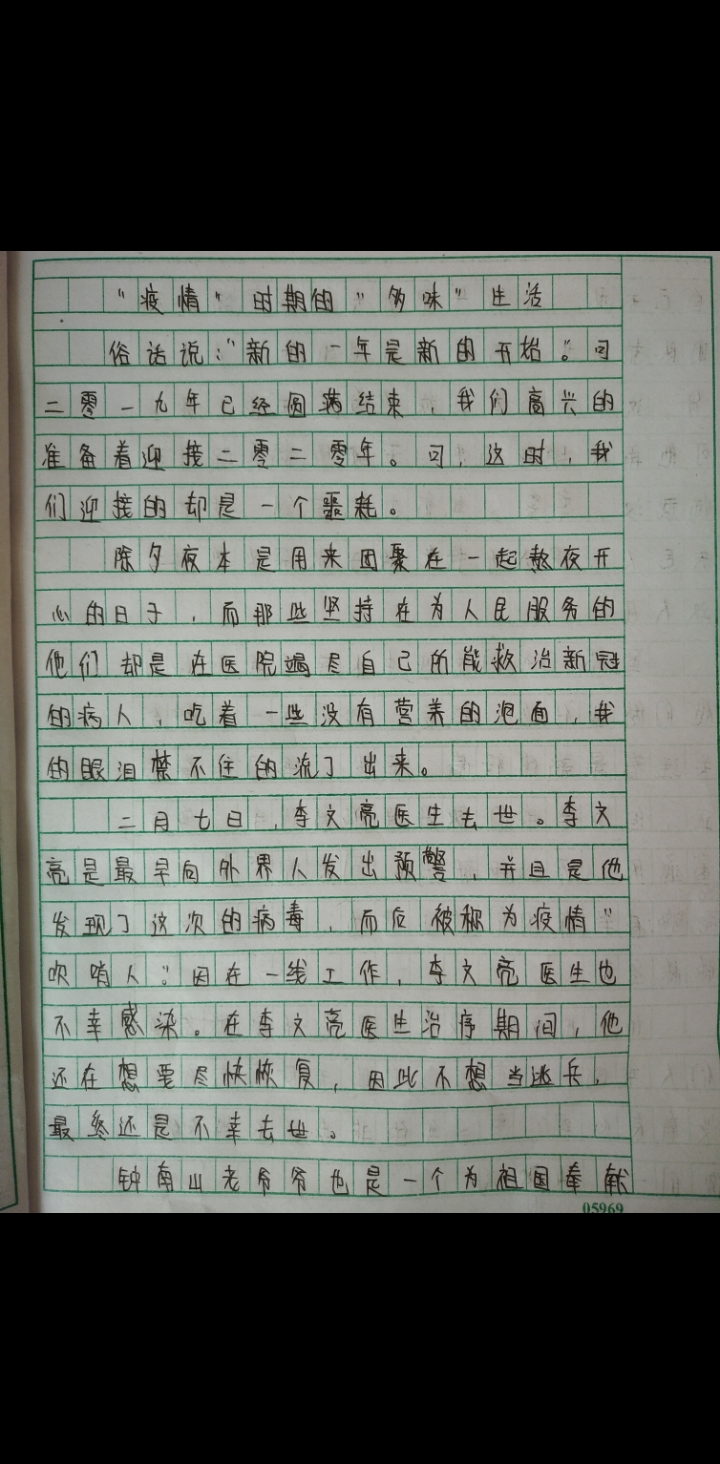 “疫情”时期的“多味”生活
俗话说：“新的一年是新的开始。”可
二零一九年已经圆满结束，我们高兴的
准备着迎接二零二零年。可，这时，我
们迎接的却是一个噩耗。
除夕夜本是用来团聚在一起熬夜开
心的日子，而那些坚持在为人民服务的
他们却是在医院竭尽自己所能救治新冠
的病人，吃着一些没有营养的泡面，我
的眼泪禁不住的流了出来。
二月七日，李文亮医生去世。李文
亮是最早向外界人发出预警，并且是他
发现了这次的病毒，而后被称为疫情“
吹哨人”。因在一线工作，李文亮医生也
不幸感染。在李文亮医生治疗期间，他
还在想要尽快恢复，因此不想当逃兵，
最终还是不幸去世。
钟南山老爷爷也是一个为祖国奉献
05969